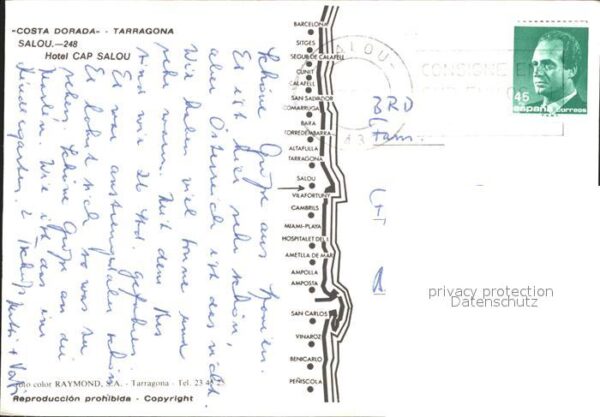 "COSTA DORADA" - TARRAGONA
SALOU.—248
Hotel CAP SALOU
Schöne Grüße aus Spanien.
Es ist hier sehr schön,
aber Österreich ist das nicht.
Wir haben viel Sonne und
sehr warm. Mit dem Bus
sind wir 26 Std. gefahren.
Es war anstrengend aber schön.
Es lohnt sich so was zu
sehen. Schöne Grüße an die
Wie ist das im
Kindergarten.
BARCELONA
SITGES
SEGUR DE CALAFELL
CUNIT
CALAFELL
SAN SALVADOR
COMARRUGA
BARA
TORREDEMBARRA
ALTAFULLA
TARRAGONA
SALOU
VILAFORTUNY
CAMBRILS
MIAMI-PLAYA
HOSPITALET DEL I.
AMETLLA DE MAR
AMPOLLA
AMPOSTA
SAN CARLOS
VINAROZ
BENICARLO
PEÑISCOLA
SALOU
CONSIGNE EN
45
españa correos
BRD
Fam.
privacy protection
Datenschutz
Foto color RAYMOND, S.A. - Tarragona - Tel. 23
Reproducción prohibida - Copyright